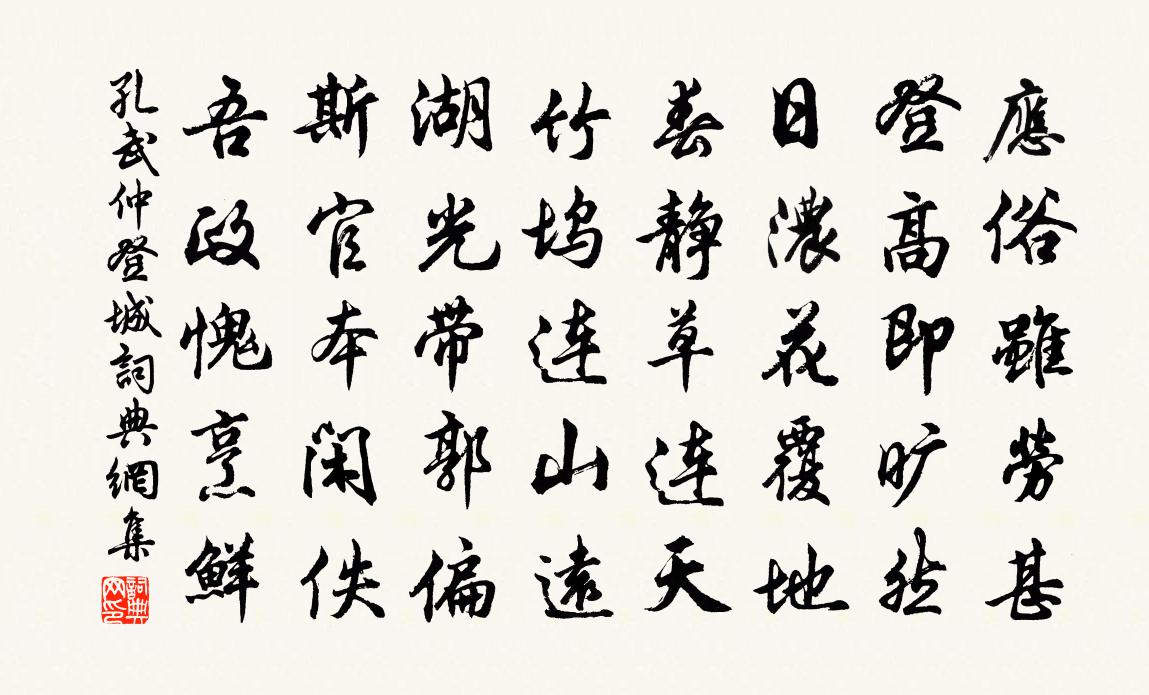 應俗雖勞甚
登高即旷然
日濃花覆地
春靜草连天
竹坞连山遠
湖光带郭偏
斯官本闲佚
吾政愧烹鮮
孔武仲登城詞典網集
詞典網印